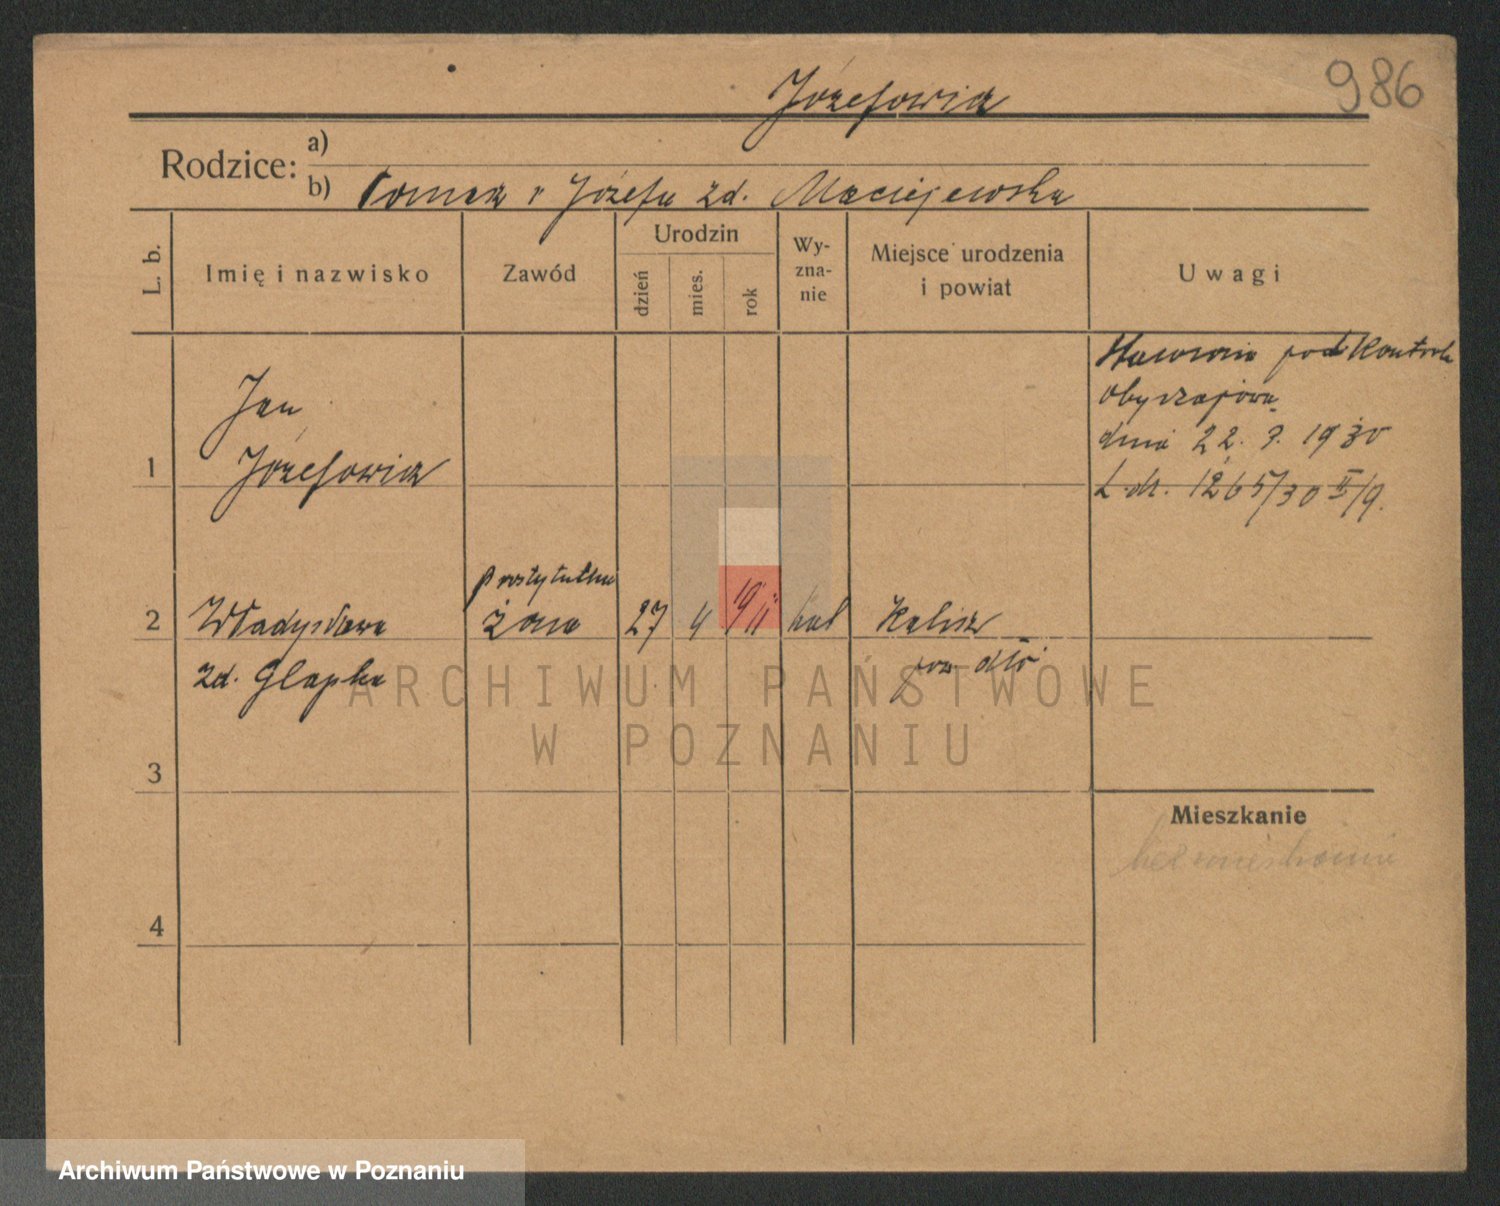 986
Józefowicz
Rodzice: a)
b) Tomasz i Józefa zd. Maciejewska
L. b.
Imię i nazwisko
Zawód
Urodzin
dzień
mies.
rok
Wy-
zna-
nie
Miejsce urodzenia
i powiat
Uwagi
pod kontrolę
obyczajową
dnia 22. 9. 1930
L. dz. 1265/30 II/9.
Jan
1
Józefowicz
prostytutka
2 Władysława żona 27 4 1911 kat Kalisz
zd. Glapka
ARCHIWUM PAŃSTWOWE
W POZNANIU
3
Mieszkanie
4
Archiwum Państwowe w Poznaniu